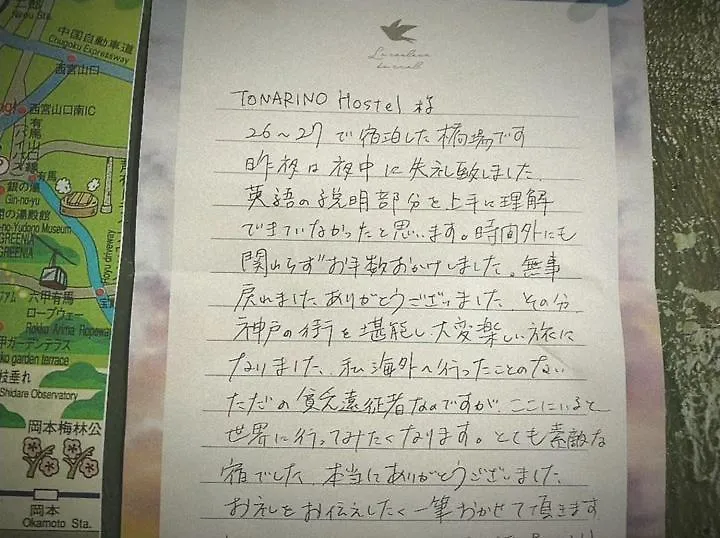 中国自動車道
Chugoku Expressway
西宮山口
西宮山口南IC
有馬
銀の湯
Gin-no-yu
の湯殿館
-no-Yudono Museum
GREENIA
GREENIA
六甲有馬
ロープウェー
Rokko Arima Ropeway
ガーデンテラス
garden terrace
枝垂れ
Shidare Observatory
岡本梅林公
岡本
Okamoto Sta.
TONARINO Hostel 様
26～27で宿泊した橋場です
昨夜は夜中に失礼致しました。
英語の説明部分を上手に理解
できていなかったと思います。時間外にも
関わらずお手数おかけしました。無事
戻れました ありがとうございました。その分、
神戸の街を堪能し大変楽しい旅に
なりました。私海外へ行ったことのない
ただの貧乏遠征者なのですが、ここにいると
世界に行ってみたくなります。とても素敵な
宿でした。本当にありがとうございました
お礼をお伝えしたく一筆おかせて頂きます